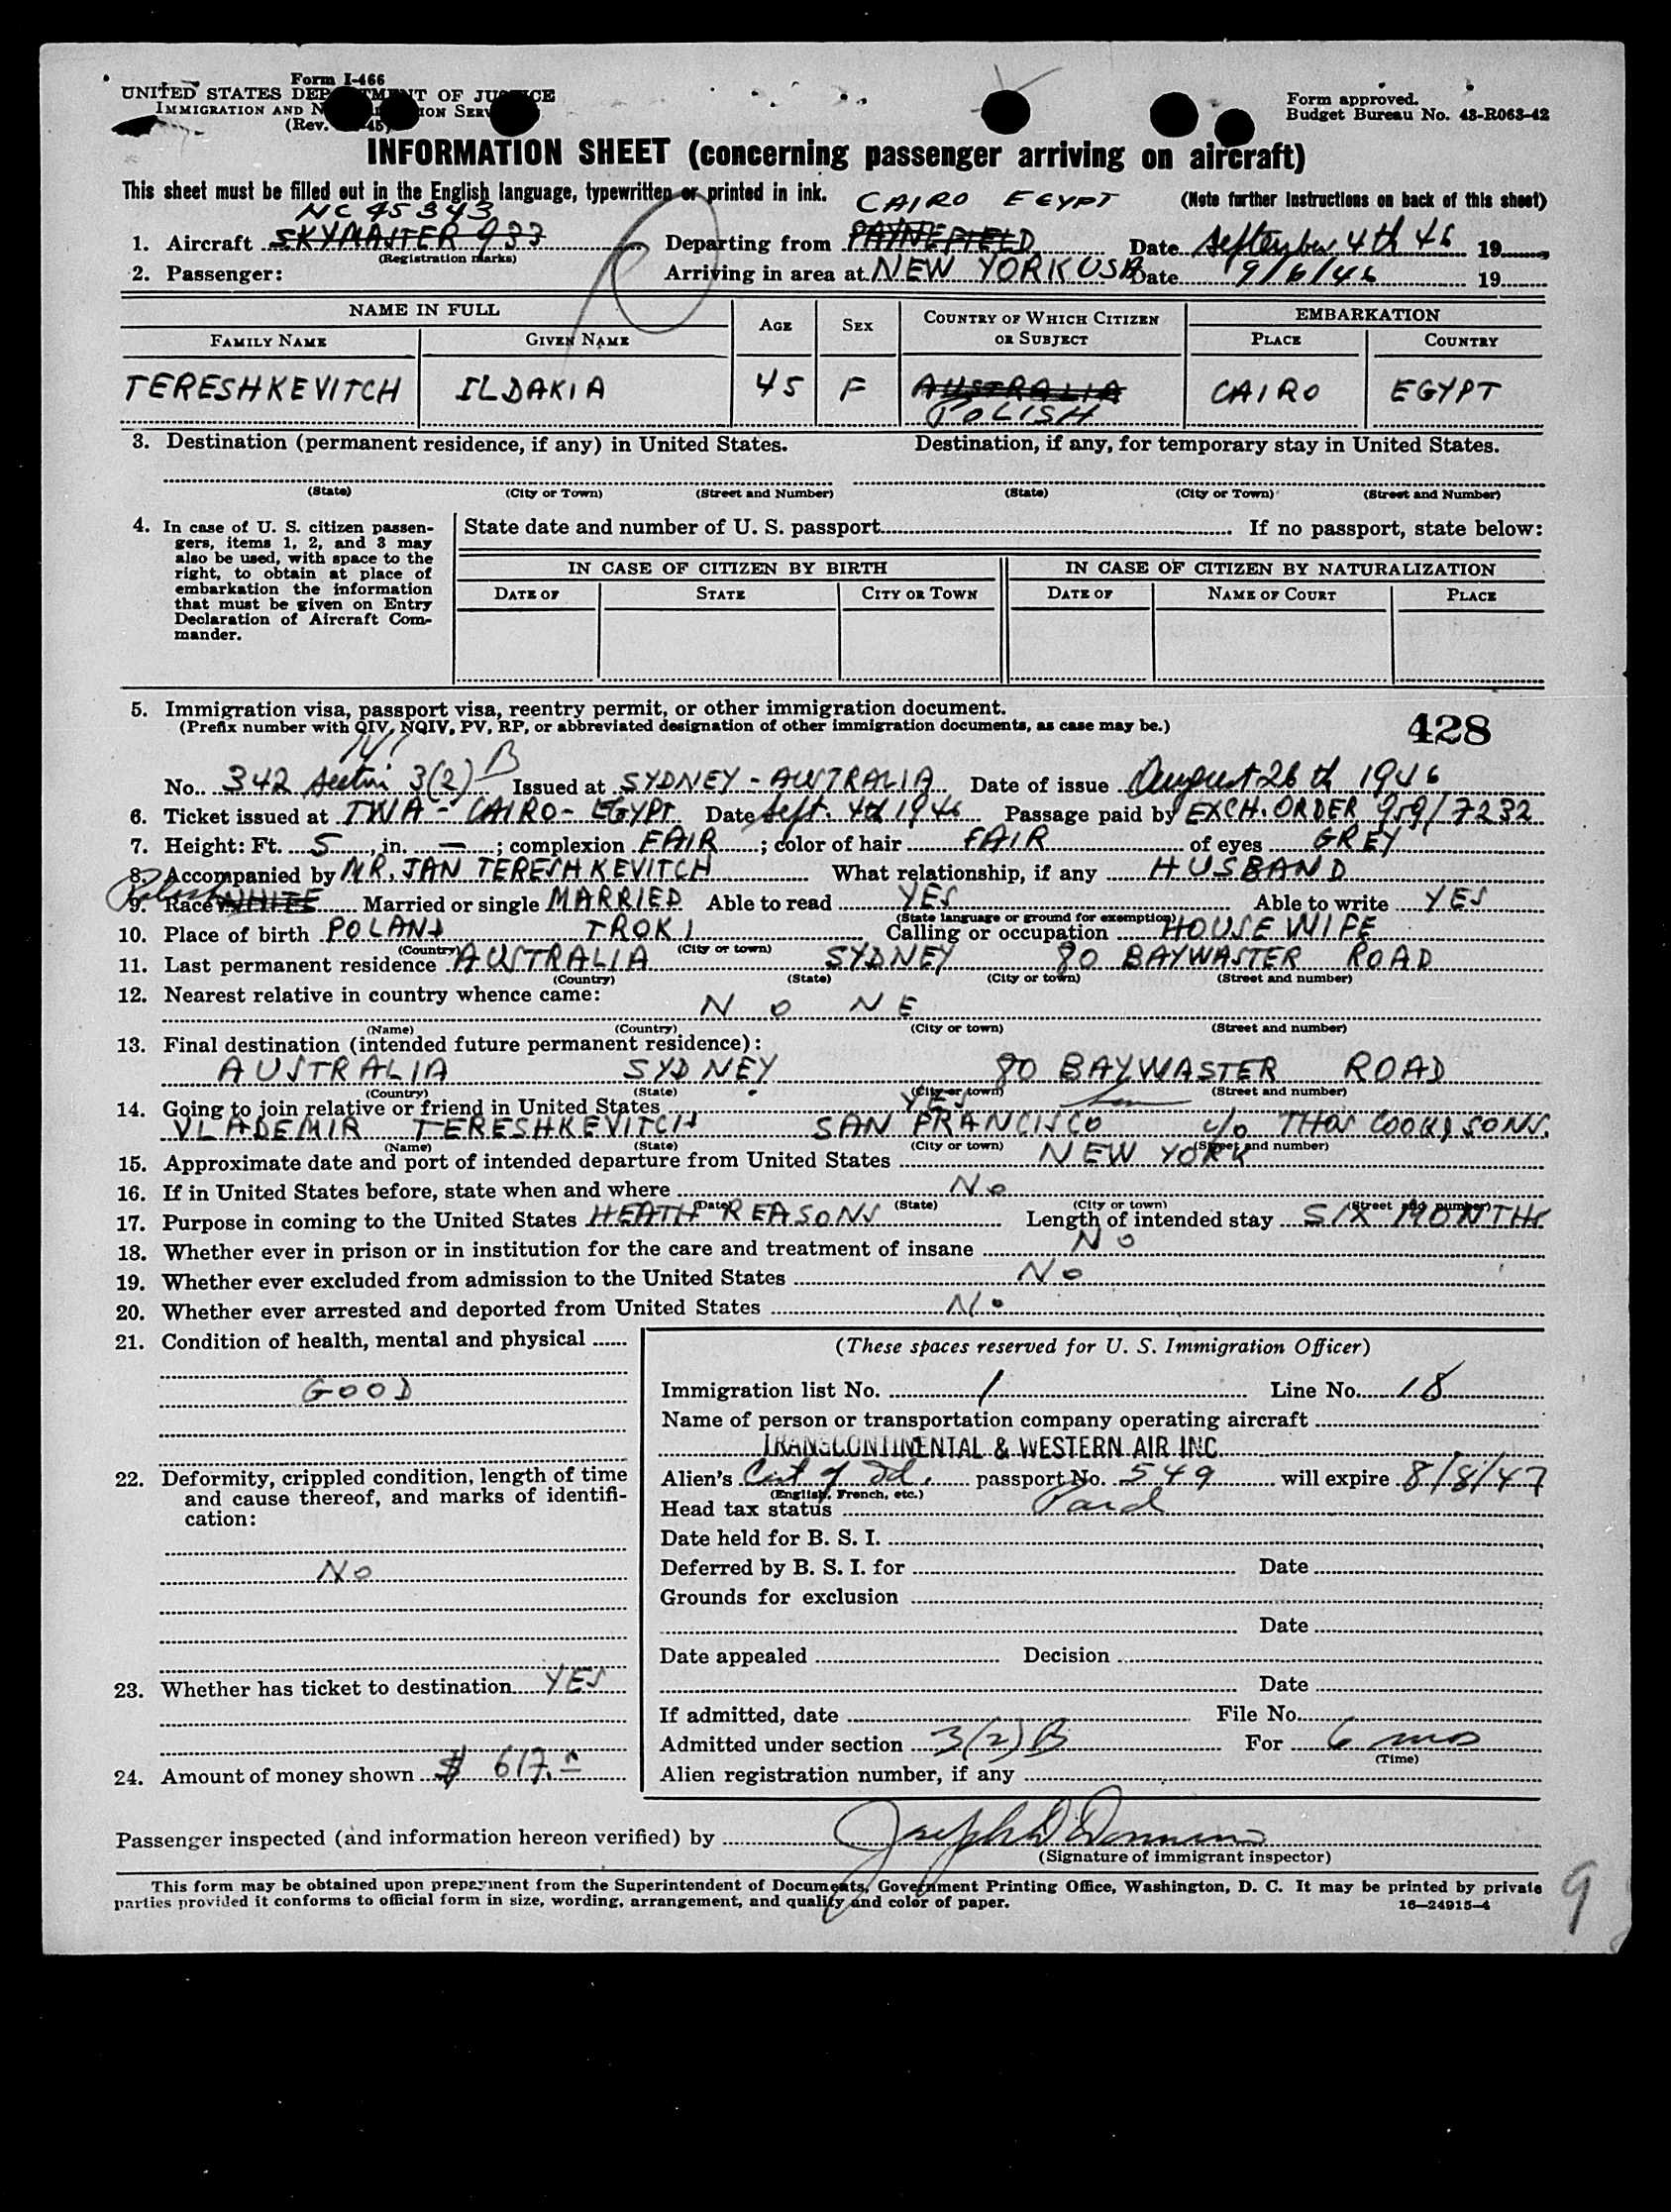 Form I-466
UNITED STATES DEP TM T OF JU CE
IMMIGRATION AND N ION SERV
(Rev. 45)
Form approved.
Budget Bureau No. 43-R063-42
INFORMATION SHEET (concerning passenger arriving on aircraft)
This sheet must be filled out in the English language, typewritten or printed in ink. CAIRO EGYPT (Note further instructions on back of this sheet)
NC 45343
1. Aircraft SKYMASTER 933 Departing from PAYNEFIELD Date September 4th 46 19
(Registration marks)
2. Passenger: Arriving in area at NEW YORK USA Date 9/6/46 19
NAME IN FULL AGE SEX COUNTRY OF WHICH CITIZEN OR SUBJECT EMBARKATION
FAMILY NAME GIVEN NAME PLACE COUNTRY
TERESHKEVITCH ILDAKIA 45 F AUSTRALIA CAIRO EGYPT
POLISH
3. Destination (permanent residence, if any) in United States. Destination, if any, for temporary stay in United States.
(State) (City or Town) (Street and Number) (State) (City or Town) (Street and Number)
4. In case of U. S. citizen passen-
gers, items 1, 2, and 3 may
also be used, with space to the
right, to obtain at place of
embarkation the information
that must be given on Entry
Declaration of Aircraft Com-
mander.
State date and number of U. S. passport If no passport, state below:
IN CASE OF CITIZEN BY BIRTH IN CASE OF CITIZEN BY NATURALIZATION
DATE OF STATE CITY OR TOWN DATE OF NAME OF COURT PLACE
5. Immigration visa, passport visa, reentry permit, or other immigration document.
(Prefix number with QIV, NQIV, PV, RP, or abbreviated designation of other immigration documents, as case may be.)
428
No. 342 section 3(2) B Issued at SYDNEY - AUSTRALIA Date of issue August 26th 1946
6. Ticket issued at TWA - CAIRO - EGYPT Date Sept. 4th 1946 Passage paid by EXCH. ORDER 959/7232
7. Height: Ft. 5, in. —; complexion FAIR; color of hair FAIR of eyes GREY
8. Accompanied by MR. JAN TERESHKEVITCH What relationship, if any HUSBAND
9. Race WHITE Polish Married or single MARRIED Able to read YES Able to write YES
(State language or ground for exemption)
10. Place of birth POLAND TROKI Calling or occupation HOUSE WIFE
(Country) (City or town)
11. Last permanent residence AUSTRALIA SYDNEY 80 BAYWASTER ROAD
(Country) (State) (City or town) (Street and number)
12. Nearest relative in country whence came: NONE
(Name) (Country) (City or town) (Street and number)
13. Final destination (intended future permanent residence):
AUSTRALIA SYDNEY 80 BAYWASTER ROAD
(Country) (State) (City or town) (Street and number)
14. Going to join relative or friend in United States YES
VLADEMIR TERESHKEVITCH SAN FRANCISCO c/o THOS COOK & SONS.
(Name) (State) (City or town) (Street and number)
15. Approximate date and port of intended departure from United States NEW YORK
16. If in United States before, state when and where No
(Date) (State) (City or town) (Street and number)
17. Purpose in coming to the United States HEATH REASONS Length of intended stay SIX MONTHS
18. Whether ever in prison or in institution for the care and treatment of insane No
19. Whether ever excluded from admission to the United States No
20. Whether ever arrested and deported from United States No
21. Condition of health, mental and physical
GOOD
22. Deformity, crippled condition, length of time
and cause thereof, and marks of identifi-
cation:
No
23. Whether has ticket to destination YES
24. Amount of money shown $ 617.
(These spaces reserved for U. S. Immigration Officer)
Immigration list No. 1 Line No. 18
Name of person or transportation company operating aircraft
TRANSCONTINENTAL & WESTERN AIR INC.
Alien's Cert of Id. passport No. 549 will expire 8/8/47
(English, French, etc.)
Head tax status Paid
Date held for B. S. I.
Deferred by B. S. I. for Date
Grounds for exclusion
Date
Date appealed Decision
Date
If admitted, date File No.
Admitted under section 3(2)B For 6 mos
(Time)
Alien registration number, if any
Passenger inspected (and information hereon verified) by
(Signature of immigrant inspector)
This form may be obtained upon prepayment from the Superintendent of Documents, Government Printing Office, Washington, D. C. It may be printed by private
parties provided it conforms to official form in size, wording, arrangement, and quality and color of paper.
16—24915-4
9